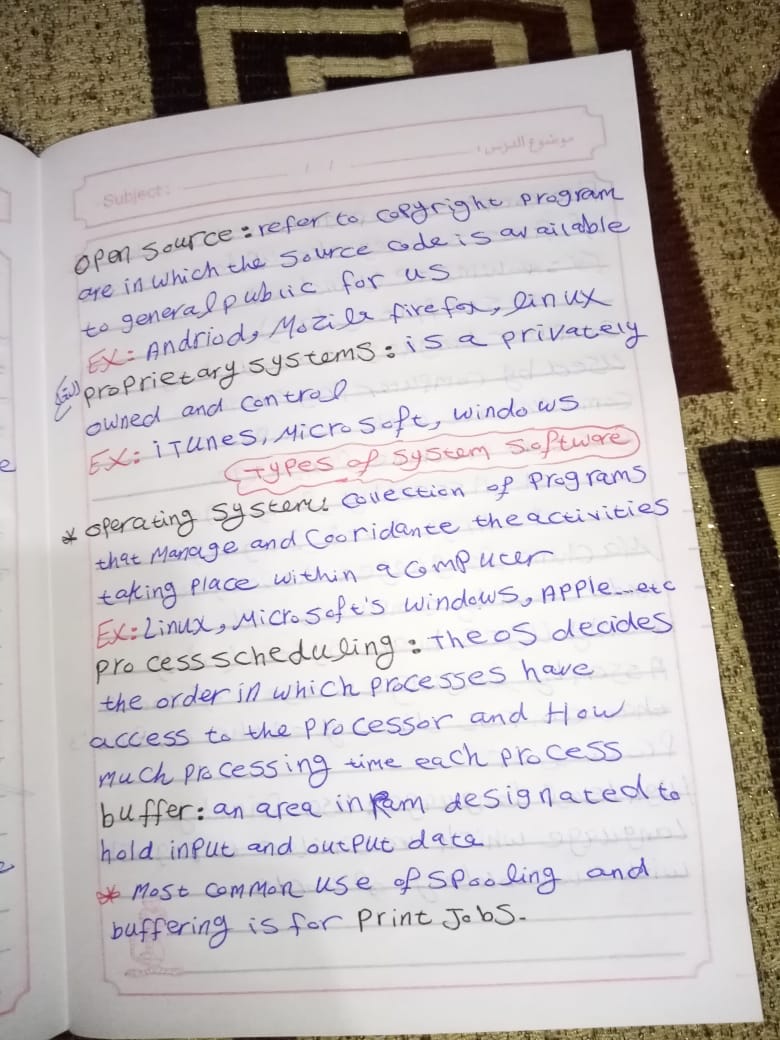 موضوع الدرس:
Subject: / /
open source: refer to copyright program
are in which the source code is available
to general public for us
EX: Andriod, Mozila firefox, linux
proprietary systems: is a privately
owned and control
EX: iTunes, Microsoft, windows
Types of system software
* operating system: collection of programs
that Manage and Cooridante the activities
taking place within a computer
EX: Linux, Microsoft's windows, Apple...etc
process scheduling: The os decides
the order in which processes have
access to the processor and How
much processing time each process
buffer: an area in Ram designated to
hold input and output data
* Most common use of spooling and
buffering is for print Jobs.